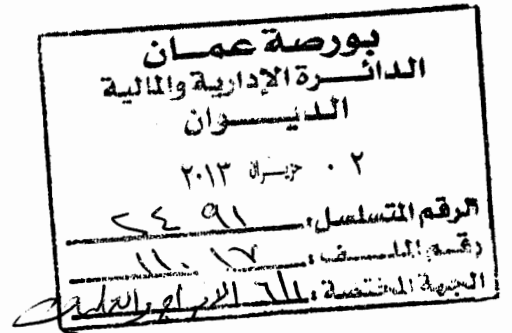 بورصة عمان
الدائرة الإدارية والمالية
الديوان
٠٢ حزيران ٢٠١٣
الرقم المتسلسل: ٢٤٩١
رقم الملف: ١١٠١٧
الجهة المختصة: الإدراج والعمليات